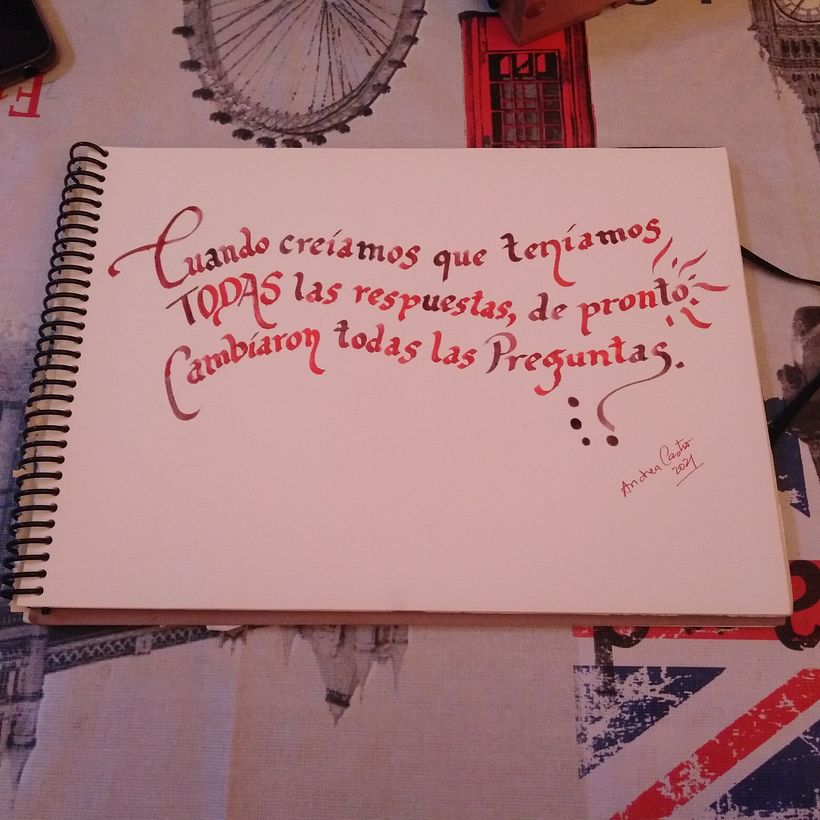 Cuando creíamos que teníamos
TODAS las respuestas, de pronto
Cambiaron todas las Preguntas.
Andrea Castro
2021